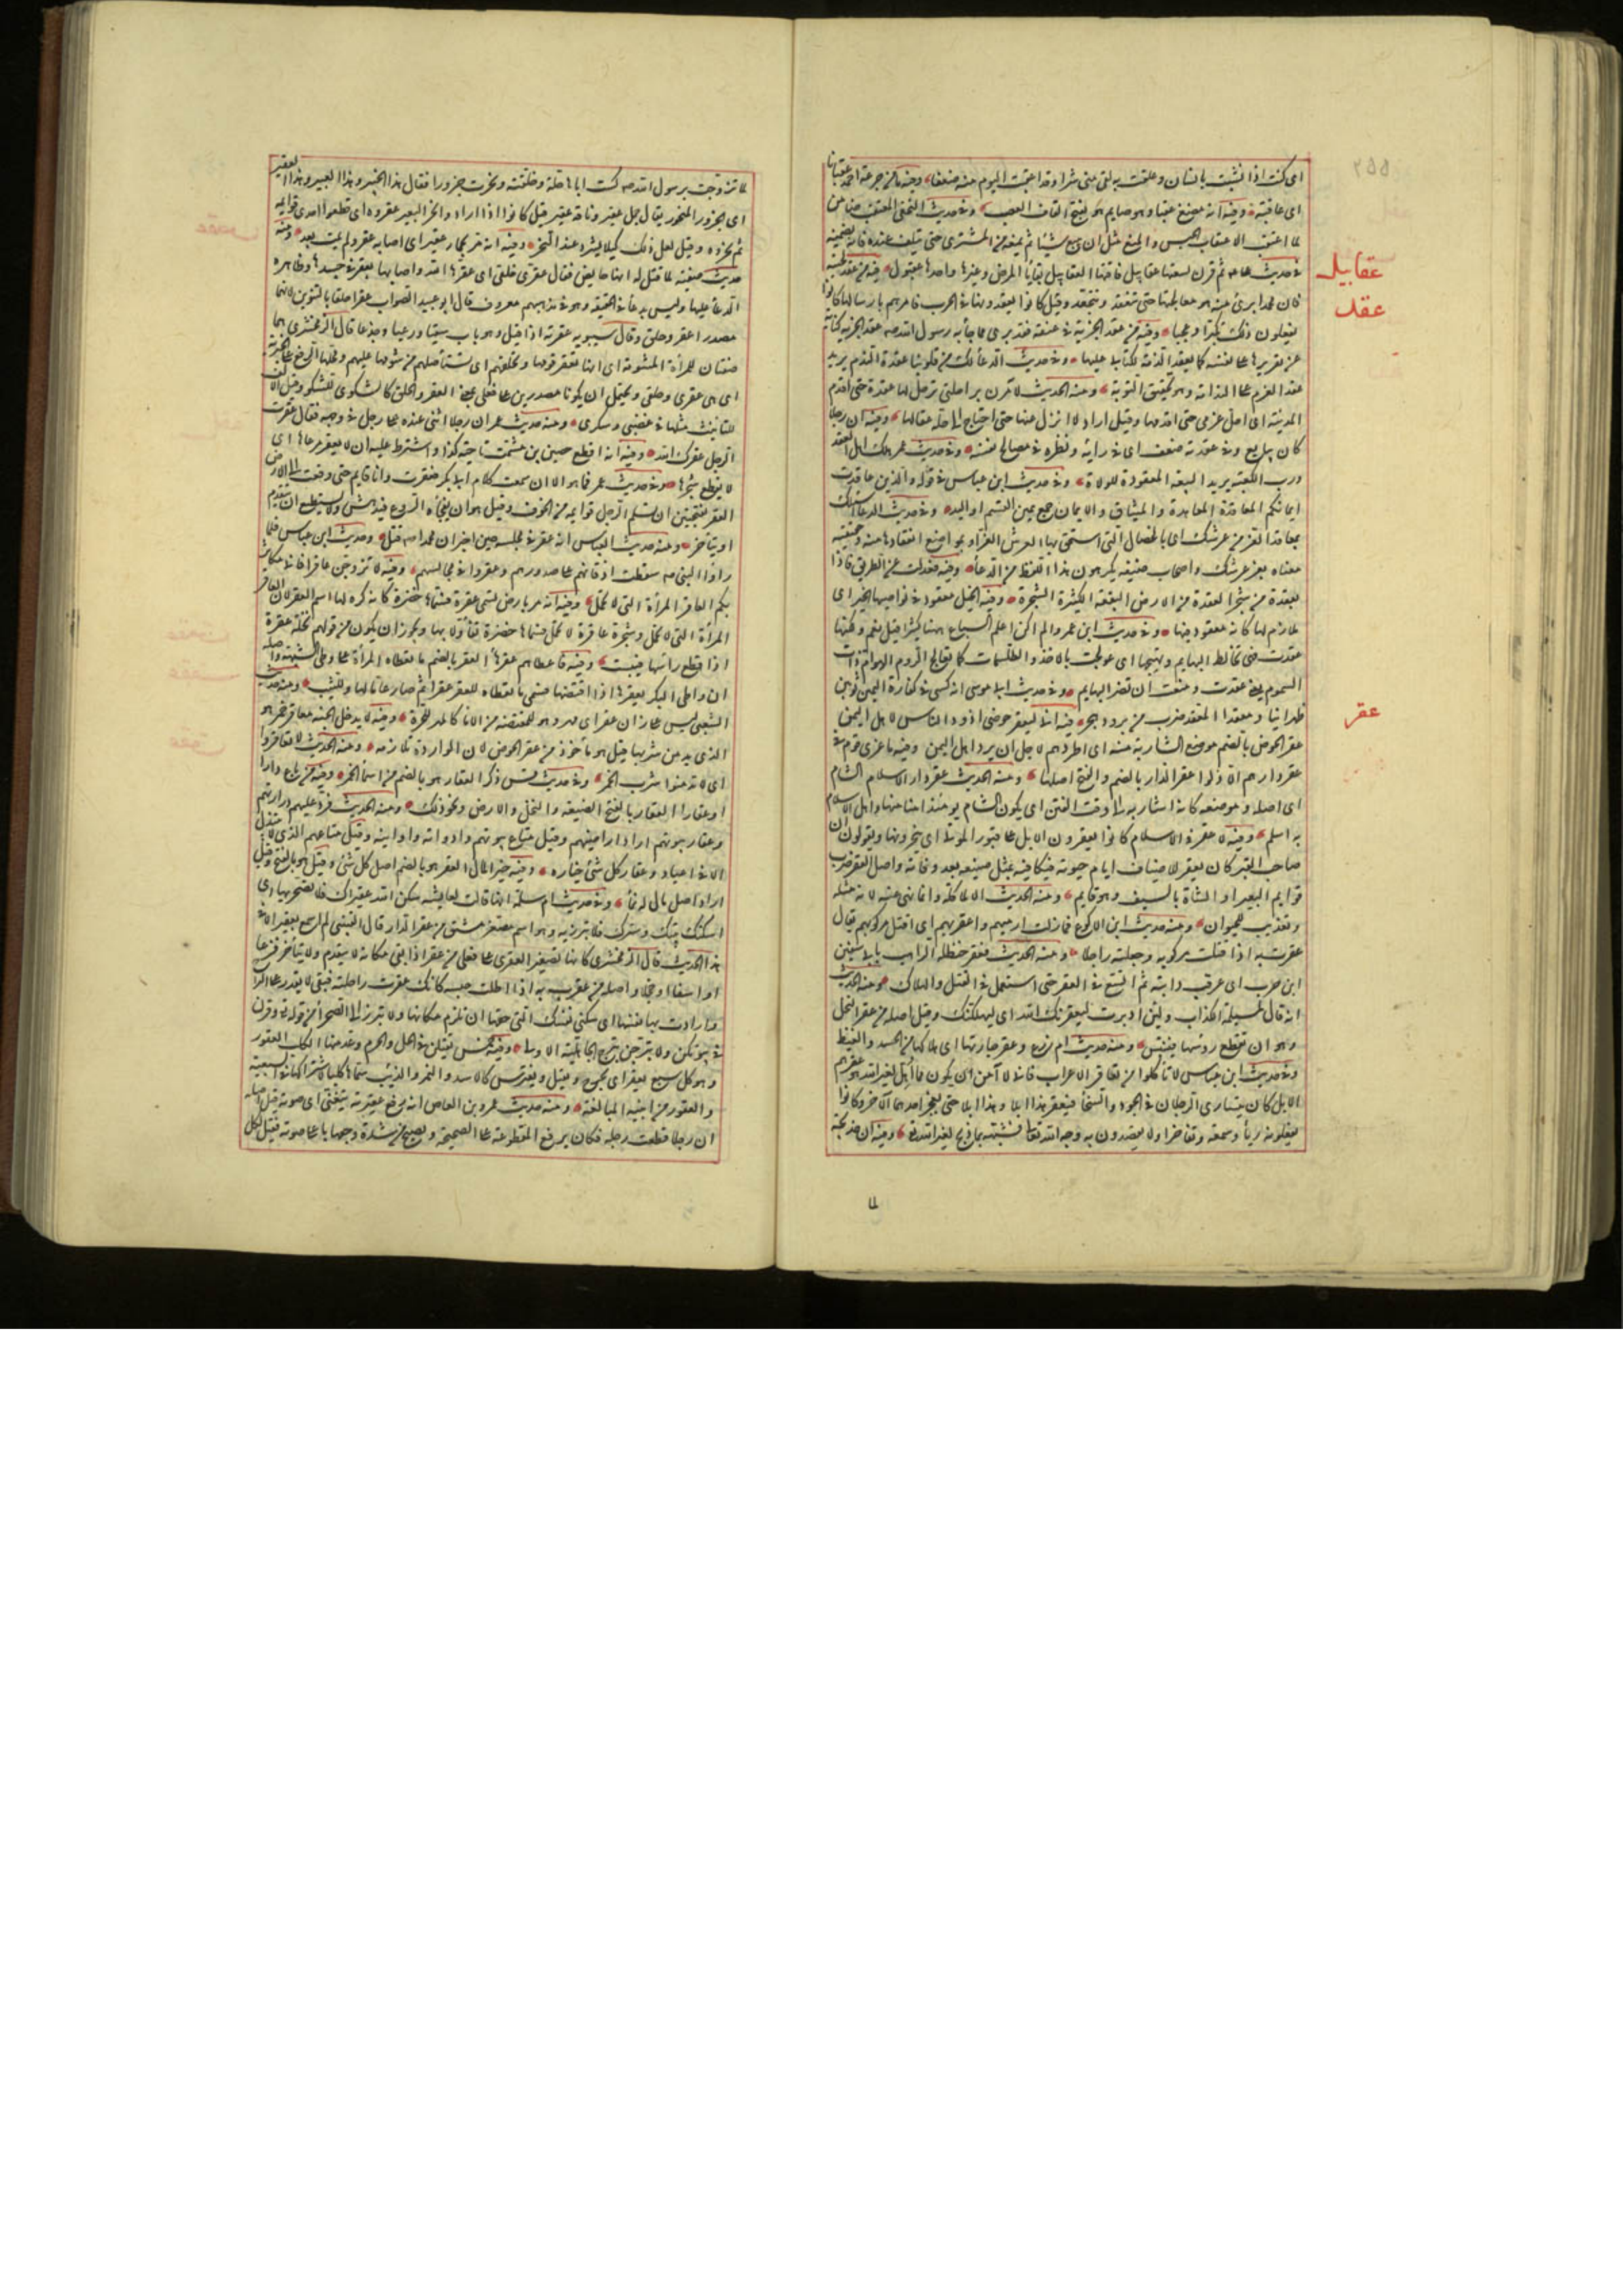 اى كنت اذا نشبت بانسان وعلقت به لقى منى شرا وقد اعقبت اليوم منه ضعفا
اى عاقبة وفيه انه مضغ عقبا وهو صايم هو بفتح القاف العصب وفى حديث النخعى المعتقب ضامن
لما اعتقب الاعتقاب الحبس والمنع مثل ان يبيع شيئا ثم يمنعه من المشترى حتى يتلف عنده فانه يضمنه
عقابيل
فى حديث على ثم قرن بسعتها عقابيل فاقتها العقابيل بقايا المرض وغيرها واحدها عقبول فيه من عقد لحيته
عقد
فان محمدا برئ منه هو معالجتها حتى تنعقد وتتجعد وقيل كانوا يعقدونها فى الحرب فامرهم بارسالها كانوا
يفعلون ذلك تكبرا وعجبا وفيه من عقد الجزية فى عنقه فقد برئ مما جاء به رسول الله عقد الجزية كناية
عن تقريرها على نفسه كما يعقد الذمة للكتابى عليها وفى حديث الدعاء لك من قلوبنا عقدة الندم يريد
عقد العزم على الندامة وهو تحقيق التوبة ومنه الحديث لآمرن براحلتى ترحل لها عقدة حتى اقدم
المدينة اى احل عزمى حتى اقدمها وقيل اراد لا انزل عنها حتى احتاج الى حل عقالها وفيه ان رجلا
كان يبايع وفى عقدته ضعف اى فى رأيه ونظره فى مصالح نفسه وفى حديث عمر هلك اهل العقد
ورب الكعبة يريد البيعة المعقودة للولاة وفى حديث ابن عباس فى قوله والذين عاقدت
ايمانكم المعاقدة المعاهدة والميثاق والايمان جمع يمين القسم او اليد وفى حديث الدعاء اسئلك
بمعاقد العز من عرشك اى بالخصال التى استحق بها العرش العز او بمواضع انعقادها منه وحقيقة
معناه بعز عرشك واصحاب حنيفة يكرهون هذا اللفظ من الدعاء وفيه فعدلت عن الطريق فاذا
بعقدة من شجر العقدة من الارض البقعة الكثيرة الشجرة وفيه الخيل معقود فى نواصيها الخير اى
ملازم لها كانه معقود فيها وفى حديث ابن عمرو الم اكن اعلم السباع ههنا كثيرا قيل نعم ولكنها
عقدت فهى تخالط البهايم ولا تهيجها اى عولجت بالاخذ والطلسمات كما يعالج الروم الهوام ذوات
السموم يعنى عقدت ومنعت ان تضر البهايم وفى حديث ابى موسى انه كسى فى كفارة اليمين ثوبين
عقر
ظهرانيا ومعقدا المعقد ضرب من برود هجر فيه انى لبعقر حوضى اذود الناس لاهل اليمن
عقر الحوض بالضم موضع الشاربة منه اى اطردهم لاجل ان يرد اهل اليمن وفيه ما غزى قوم فى
عقر دارهم الا ذلوا عقر الدار بالضم والفتح اصلها ومنه الحديث عقر دار الاسلام الشام
اى اصله وموضعه كانه اشار به الى وقت الفتن اى يكون الشام يومئذ امنا منها واهل الاسلام
به اسلم وفيه لا عقر فى الاسلام كانوا يعقرون الابل على قبور الموتى اى ينحرونها ويقولون ان
صاحب القبر كان يعقر للاضياف ايام حيوته فنكافيه بمثل صنيعه بعد وفاته واصل العقر ضرب
قوايم البعير او الشاة بالسيف وهو قايم ومنه الحديث الا لمأكلة وانما نهى عنه لانه مثلة
وتعذيب للحيوان ومنه حديث ابن الاكوع فمازلت ارميهم واعقر بهم اى اقتل مركوبهم يقال
عقرت به اذا قتلت مركوبه وجعلته راجلا ومنه الحديث فعقر حنظلة الراهب بابى سفين
ابن حرب اى عرقب دابته ثم اتسع فى العقر حتى استعمل فى القتل والهلاك ومنه الحديث
انه قال لمسيلمة الكذاب ولئن ادبرت ليعقرنك الله اى ليهلكنك وقيل اصله من عقر النخل
وهو ان تقطع رؤسها فتيبس ومنه حديث ام زرع وعقر جارتها اى هلاكها من الحسد والغيظ
وفى حديث ابن عباس لا تأكلوا من تعاقر الاعراب فانى لا آمن ان يكون مما اهل لغير الله هو عقرهم
الابل كان يتبارى الرجلان فى الجود والسخاء فيعقر هذا ابلا وهذا ابلا حتى يعجز احدهما الآخر وكانوا
يفعلونه رياء وسمعة وتفاخرا ولا يقصدون به وجه الله تعالى فشبهه بما ذبح لغير الله تعالى وفيه ان خديجة
لما
لما تزوجت برسول الله كست اباها حلة وخلقته ونحرت جزورا فقال ما هذا الحبير وهذا العبير وهذا العقير
اى الجزور المنحور يقال جمل عقير وناقة عقير قيل كانوا اذا ارادوا نحر البعير عقروه اى قطعوا احدى قوايمه
ثم نحروه وقيل يفعل ذلك كيلا يشرد عند النحر وفيه انه مر بحمار عقير اى اصابه عقر ولم يمت بعد ومنه
حديث صفية لما قيل له انها حايض فقال عقرى حلقى اى عقرها الله واصابها بعقر فى جسدها وظاهره
الدعاء عليها وليس بدعاء فى الحقيقة وهو فى مذهبهم معروف قال ابو عبيد الصواب عقرا حلقا بالتنوين لانهما
مصدرا عقر وحلق وقال سيبويه عقرته اذا قيل له وهو باب سقيا ورعيا وجدعا قال الزمخشرى هما
صفتان للمرأة المشومة اى انها تعقر قومها وتحلقهم اى تستأصلهم من شومها عليهم ومحلها الرفع على الخبرية
اى هى عقرى وحلقى ويحتمل ان يكونا مصدرين على فعلى بمعنى العقر والحلق كالشكوى للشكو وقيل الالف
للتانيث مثلها فى غضبى وسكرى ومنه حديث عمر ان رجلا اثنى عنده على رجل فى وجهه فقال عقرت
الرجل عقرك الله وفيه انه اقطع حصين بن مشمت ناحية كذا واشترط عليه ان لا يعقر مرعاها اى
لا يقطع شجرها وفى حديث عمر فما هو الا ان سمعت كلام ابى بكر فعقرت وانا قايم حتى وقعت الى الارض
العقر بفتحتين ان تسلم الرجل قوايمه من الخوف وقيل هو ان يفجأه الروع فيدهش ولا يستطيع ان يتقدم
او يتأخر ومنه حديث العباس انه عقر فى مجلسه حين اخبر ان محمدا قتل وحديث ابن عباس فلما
راوا النبى سقطت اذقانهم على صدورهم وعقروا فى مجالسهم وفيه لا تزوجن عاقرا فانى مكاثر
بكم العاقر المرأة التى لا تحمل وفيه انه مر بارض تسمى عقرة فسماها خضرة كانه كره لها اسم العقر لان العاقر
المرأة التى لا تحمل وشجرة عاقرة لا تحمل فسماها خضرة تفاؤلا بها ويجوز ان يكون من قولهم نخلة عقرة
اذا قطع رأسها فيبست وفيه فاعطاهم عقرها العقر بالضم ما تعطاه المرأة على وطئ الشبهة واصله
ان واطئ البكر يعقرها اذا افتضها فسمى ما تعطاه للعقر عقرا ثم صار عاما لها وللثيب ومنه حديث
الشعبى ليس على زان عقر اى مهر وهو للمغتصبة من الاماء كالمهر للحرة وفيه لا يدخل الجنة معاقر خمر هو
الذى يدمن شربها قيل هو مأخوذ من عقر الحوض لان الواردة تلازمه ومنه الحديث لا تعاقروا
اى لا تدمنوا شرب الخمر وفى حديث قس ذكر العقار هو بالضم من اسماء الخمر وفيه من باع دارا
او عقارا العقار بالفتح الضيعة والنخل والارض ونحو ذلك ومنه الحديث فرد عليهم ذراريهم
وعقار بيوتهم اراد اراضيهم وقيل متاع بيوتهم وادواته واوانيه وقيل متاعهم الذى لا يبتذل
الا فى الاعياد وعقار كل شئ خياره وفيه خير المال العقر هو بالضم اصل كل شئ وقيل هو بالفتح وقيل
اراد اصل مال له نماء وفى حديث ام سلمة انها قالت لعايشة سكن الله عقيراك فلا تصحريها اى
اسكنك بيتك وسترك فلا تبرزيه وهو اسم مصغر مشتق من عقر الدار قال القتيبى لم اسمع بعقيرا الا فى
هذا الحديث قال الزمخشرى كانها تصغير العقرى على فعلى من عقر اذا بقى مكانه لا يتقدم ولا يتأخر فزعا
او اسفا او خجلا واصله من عقرت به اذا اطلت حبسه كانك عقرت راحلته فبقى لا يقدر على البراح
وارادت بها نفسها اى سكنى نفسك التى حقها ان تلزم مكانها ولا تبرز الى الصحراء من قوله تعالى وقرن
فى بيوتكن ولا تبرجن تبرج الجاهلية الاولى وفيه خمس يقتلن فى الحل والحرم وعد منها الكلب العقور
وهو كل سبع يعقر اى يجرح ويقتل ويفترس كالاسد والنمر والذئب سماها كلبا لاشتراكها فى السبعية
والعقور من ابنية المبالغة ومنه حديث عمرو بن العاص انه رفع عقيرته يتغنى اى صوته قيل اصله
ان رجلا قطعت رجله فكان يرفع المقطوعة على الصحيحة ويصيح من شدة وجعها باعلى صوته فقيل لكل